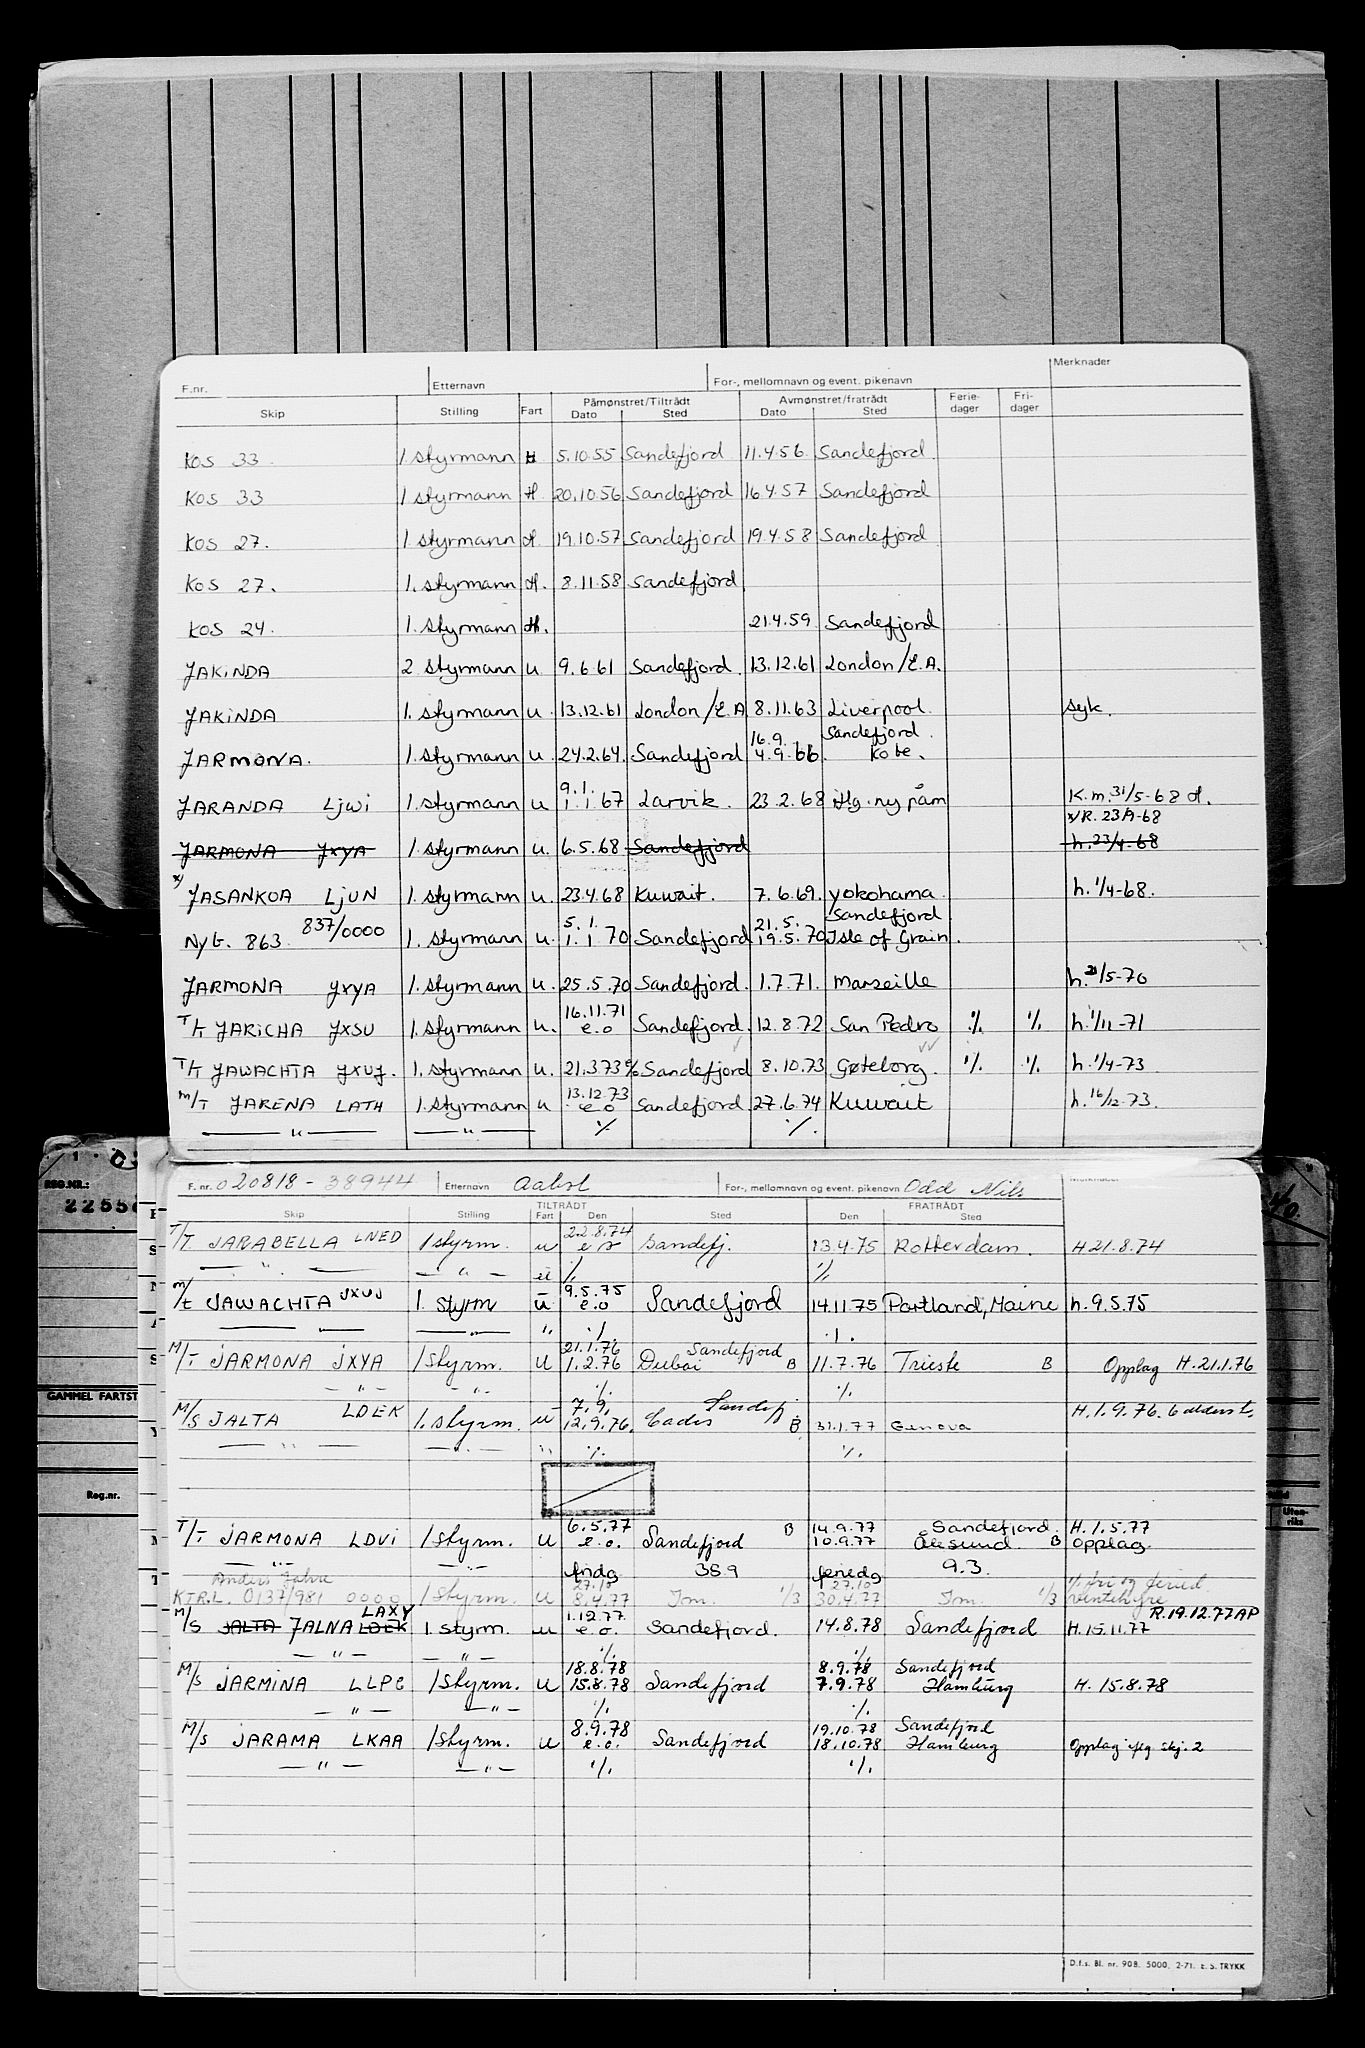 F.nr. Etternavn For-, mellomnavn og event. pikenavn Merknader
Skip Stilling Fart Påmønstret/Tiltrådt Dato Sted Avmønstret/fratrådt Dato Sted Ferie-dager Fri-dager
KOS 33 1 styrmann H 5.10.55 Sandefjord 11.4.56 Sandefjord
KOS 33 1 styrmann H. 20.10.56 Sandefjord 16.4.57 Sandefjord
KOS 27. 1 styrmann H. 19.10.57 Sandefjord 19.4.58 Sandefjord
KOS 27. 1. styrmann H. 8.11.58 Sandefjord
KOS 24. 1. styrmann H. 21.4.59 Sandefjord
JAKINDA 2 styrmann u 9.6.61 Sandefjord. 13.12.61 London/E.A.
JAKINDA 1. styrmann u. 13.12.61 London/E.A 8.11.63 Liverpool. syk.
16.9. Sandefjord.
JARMONA. 1. styrmann u. 24.2.64. Sandefjord 4.9.66. Kobe.
9.1.
JARANDA LJWI 1. styrmann u 1.1.67 Larvik. 23.2.68 iflg. ny påm K.m. 31/5-68 H.
x/R. 23/4-68
JARMONA JXYA 1. styrmann u. 6.5.68 Sandefjord h. 23/4-68
x/ JASANKOA LJUN 1. styrmann u. 23.4.68 Kuwait. 7.6.69. Yokohama. h. 1/4-68.
5.1. 21.5. Sandefjord
Nyb. 863 837/0000 1. styrmann u. 1.1.70 Sandefjord 19.5.70 Isle of Grain.
JARMONA JXYA 1. styrmann u. 25.5.70 Sandefjord. 1.7.71. Marseille h. 21/5-70
16.11.71
T/T JARICHA JXSU 1. styrmann u. e.o Sandefjord. 12.8.72 San Pedro % % h. 1/11-71
T/T JAWACHTA JXUJ. 1. styrmann u. 21.3.73 % Sandefjord 8.10.73 Gøteborg. % % h. 1/4-73
13.12.73
M/T JARENA LATH 1. styrmann u e.o Sandefjord. 27.6.74 Kuwait h. 16/12-73.
— " — — " — % %
F. nr. 020818 - 38944 Etternavn Aabol For-, mellomnavn og event. pikenavn Odd Nils Merknader
Skip Stilling TILTRÅDT Fart Den Sted FRATRÅDT Den Sted
22.8.74
T/T JARABELLA LNED 1 styrm. u e o Sandefj. 13.4.75 Rotterdam. H 21.8.74
— " — — " — u % %
9.5.75
M/t JAWACHTA JXUJ 1. styrm u e.o Sandefjord 14.11.75 Portland, Maine h. 9.5.75
— " — — " — " % %
21.1.76 Sandefjord
M/T JARMONA JXYA 1 styrm. u 1.2.76 Dubai B 11.7.76 Trieste B Opplag H. 21.1.76
— " — — " — % %
7.9. Sandefj.
M/S JALTA LDEK 1. styrm. u 12.9.76. Cadis B 31.1.77 Genova H. 1.9.76. 6 alderst.
— " — — " — " % %
6.5.77 14.9.77 Sandefjord. H. 1.5.77
T/T JARMONA LDVI 1 styrm. u e.o. Sandefjord B 10.9.77 Ålesund. B opplag.
— " — — " — fridg 38.9 feriedg 9.3
Anders Jahre 27.10 27.10 % fri og feried.
KTR.L. 0137/981 0000 1 styrm. u 8.4.77 Tom. 1/3 30.4.77 Tom. 1/3 ventehyre
LAXY 1.12.77 R. 19.12.77 AP
M/S JALTA JALNA LDEK 1. styrm. u e.o. Sandefjord. 14.8.78 Sandefjord H. 15.11.77
— " — — " — % %
18.8.78 8.9.78 Sandefjord
M/S JARMINA LLPG 1 styrm. u 15.8.78 Sandefjord 7.9.78 Hamburg H. 15.8.78
— " — — " — % %
8.9.78 19.10.78 Sandefjord
M/S JARAMA LKAA 1 styrm. u e.o. Sandefjord 18.10.78 Hamburg Opplag iflg skj. 2
— " — — " — % %
D.f.s. Bl. nr. 908. 5000. 2-71. E. S. TRYKK
REG.NR.:
2255
GAMMEL FARTST
Reg.nr.
Uten-riks